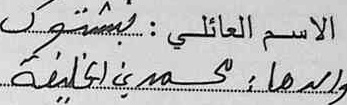 الاسم العائلي : بشتوك
والدها : محمد بن الخليفة